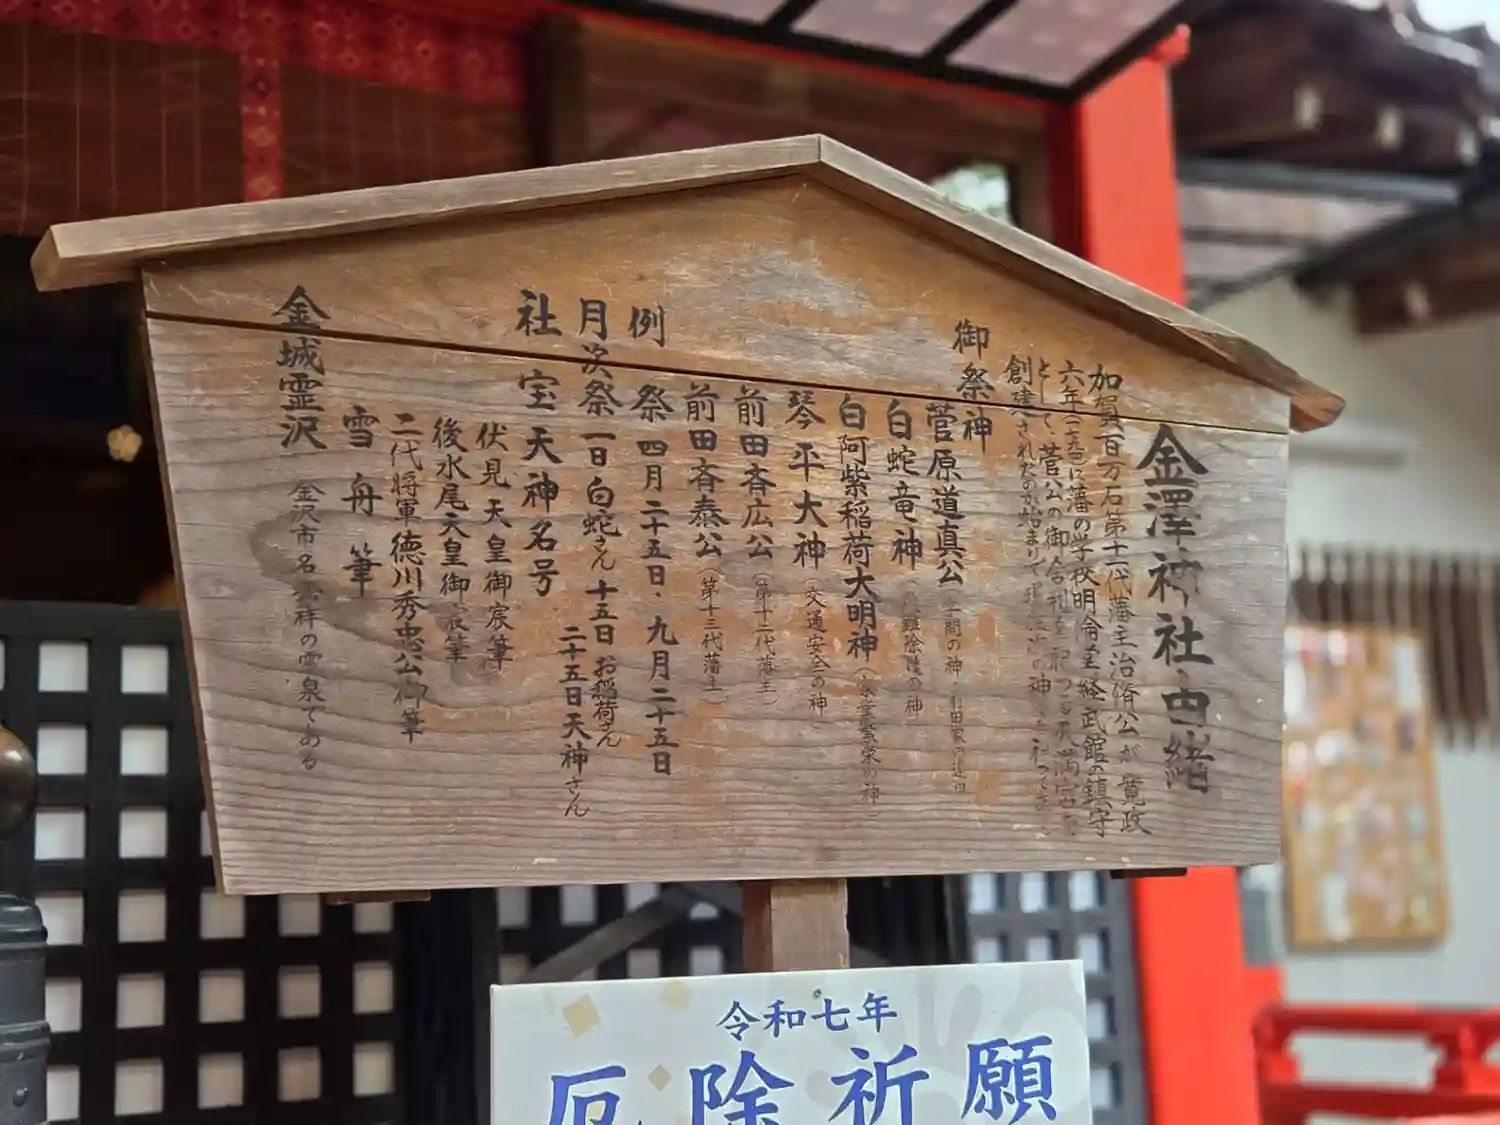 金澤神社由緒
加賀百万石第十一代藩主治脩公が寛政
六年に藩の学校明倫堂経武館の鎮守
として菅公の御舎利を
創建されたのが始まりで
御祭神
菅原道真公（学問の神
白蛇竜神（災難除けの神）
白阿紫稲荷大明神（
琴平大神（交通安全の神）
前田斉広公（第十二代藩主）
前田斉泰公（第十三代藩主）
例祭 四月二十五日・九月二十五日
月次祭 一日白蛇さん 十五日お稲荷さん
二十五日天神さん
社宝 天神名号
伏見天皇御宸筆
後水尾天皇御宸筆
二代将軍徳川秀忠公御筆
雪舟筆
金城霊沢 金沢市名 祥の霊泉である
令和七年
厄除祈願